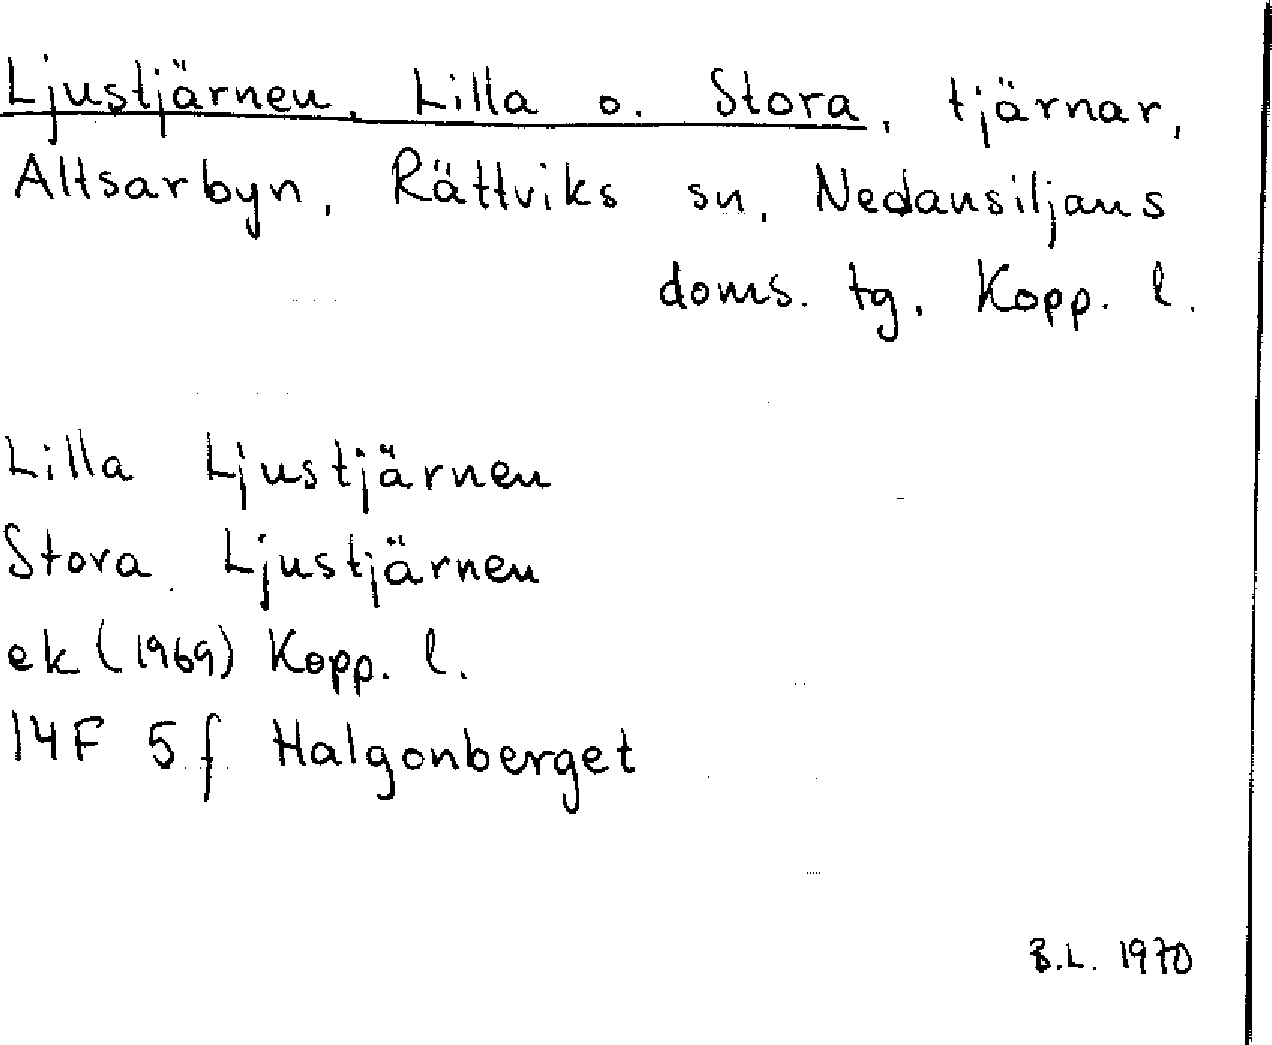 Ljustjärnen, Lilla o. Stora, tjärnar,
Altsarbyn, Rättviks sn, Nedansiljans
doms. tg, Kopp. l.
Lilla Ljustjärnen
Stora Ljustjärnen
ek (1969) Kopp. l.
14F 5 f Halgonberget
B.L. 1970